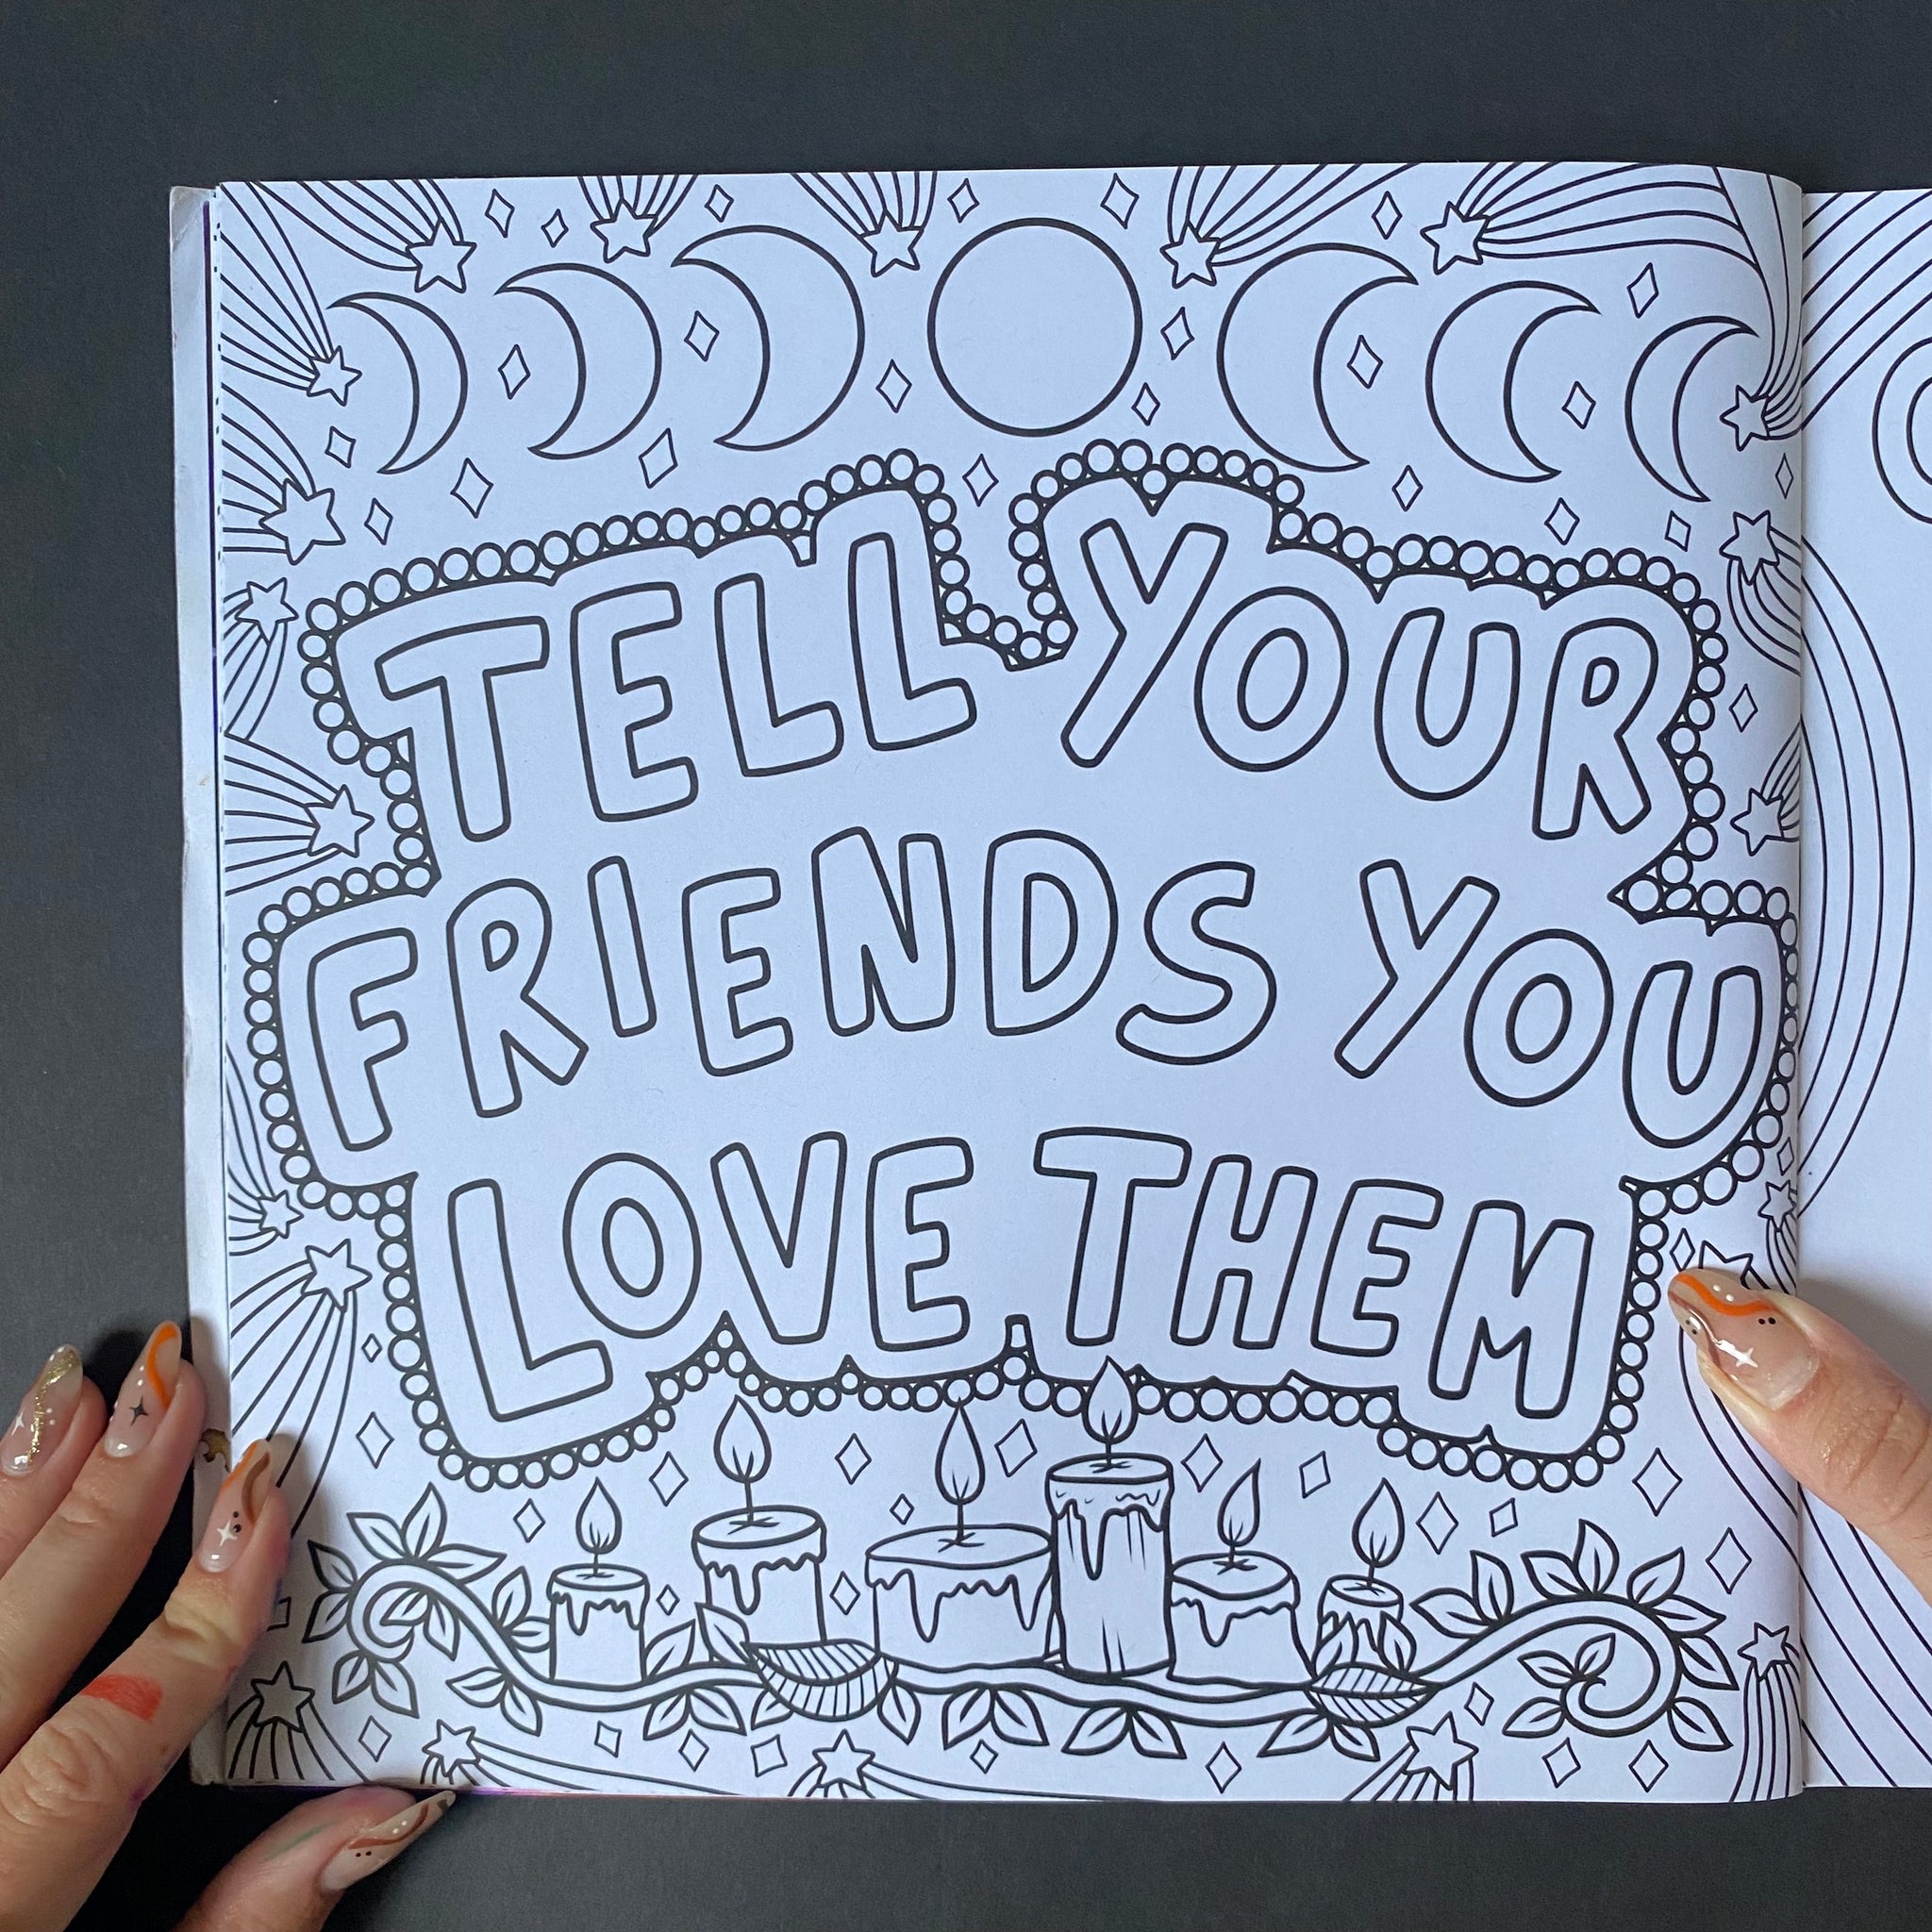 TELL YOUR
FRIENDS YOU
LOVE THEM